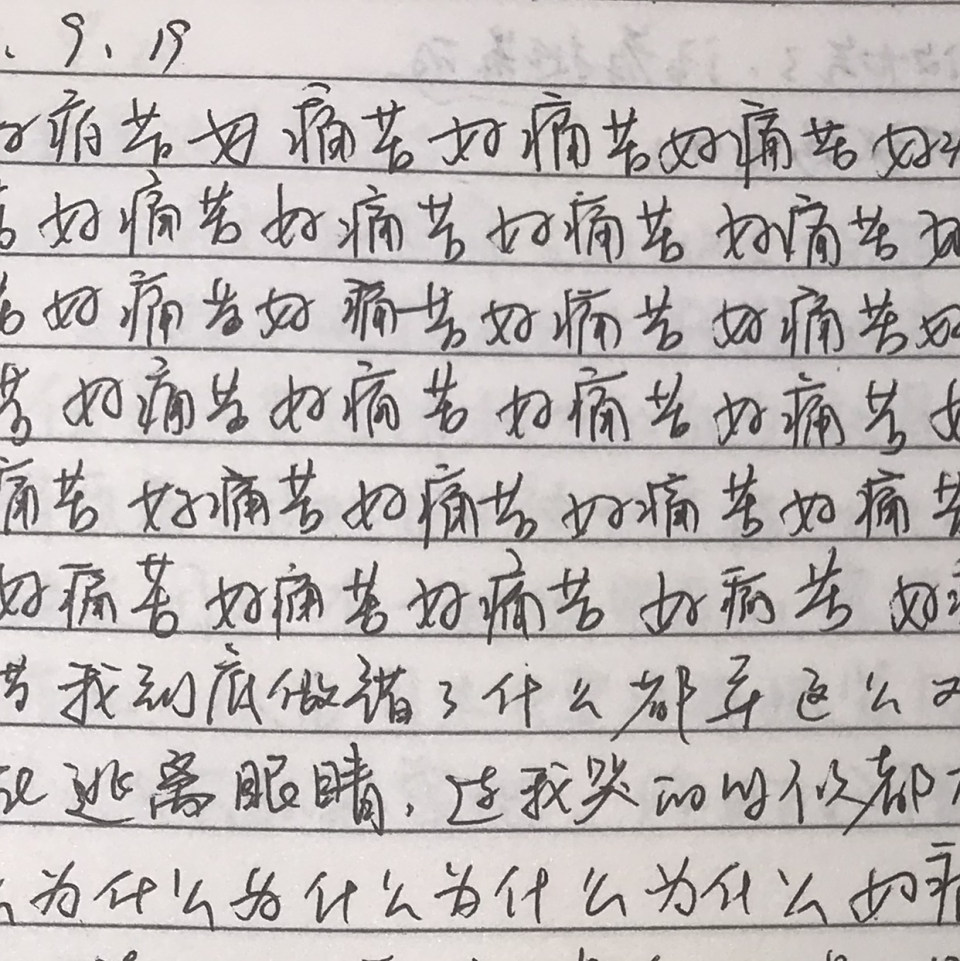 .9.19
好痛苦好痛苦好痛苦好痛苦好
苦好痛苦好痛苦好痛苦好痛苦好
苦好痛苦好痛苦好痛苦好痛苦好
苦好痛苦好痛苦好痛苦好痛苦好
痛苦好痛苦好痛苦好痛苦好痛苦
好痛苦好痛苦好痛苦好痛苦好
苦我到底做错了什么都年这么
逃离眼睛,连我哭的时候都
么为什么为什么为什么为什么好痛